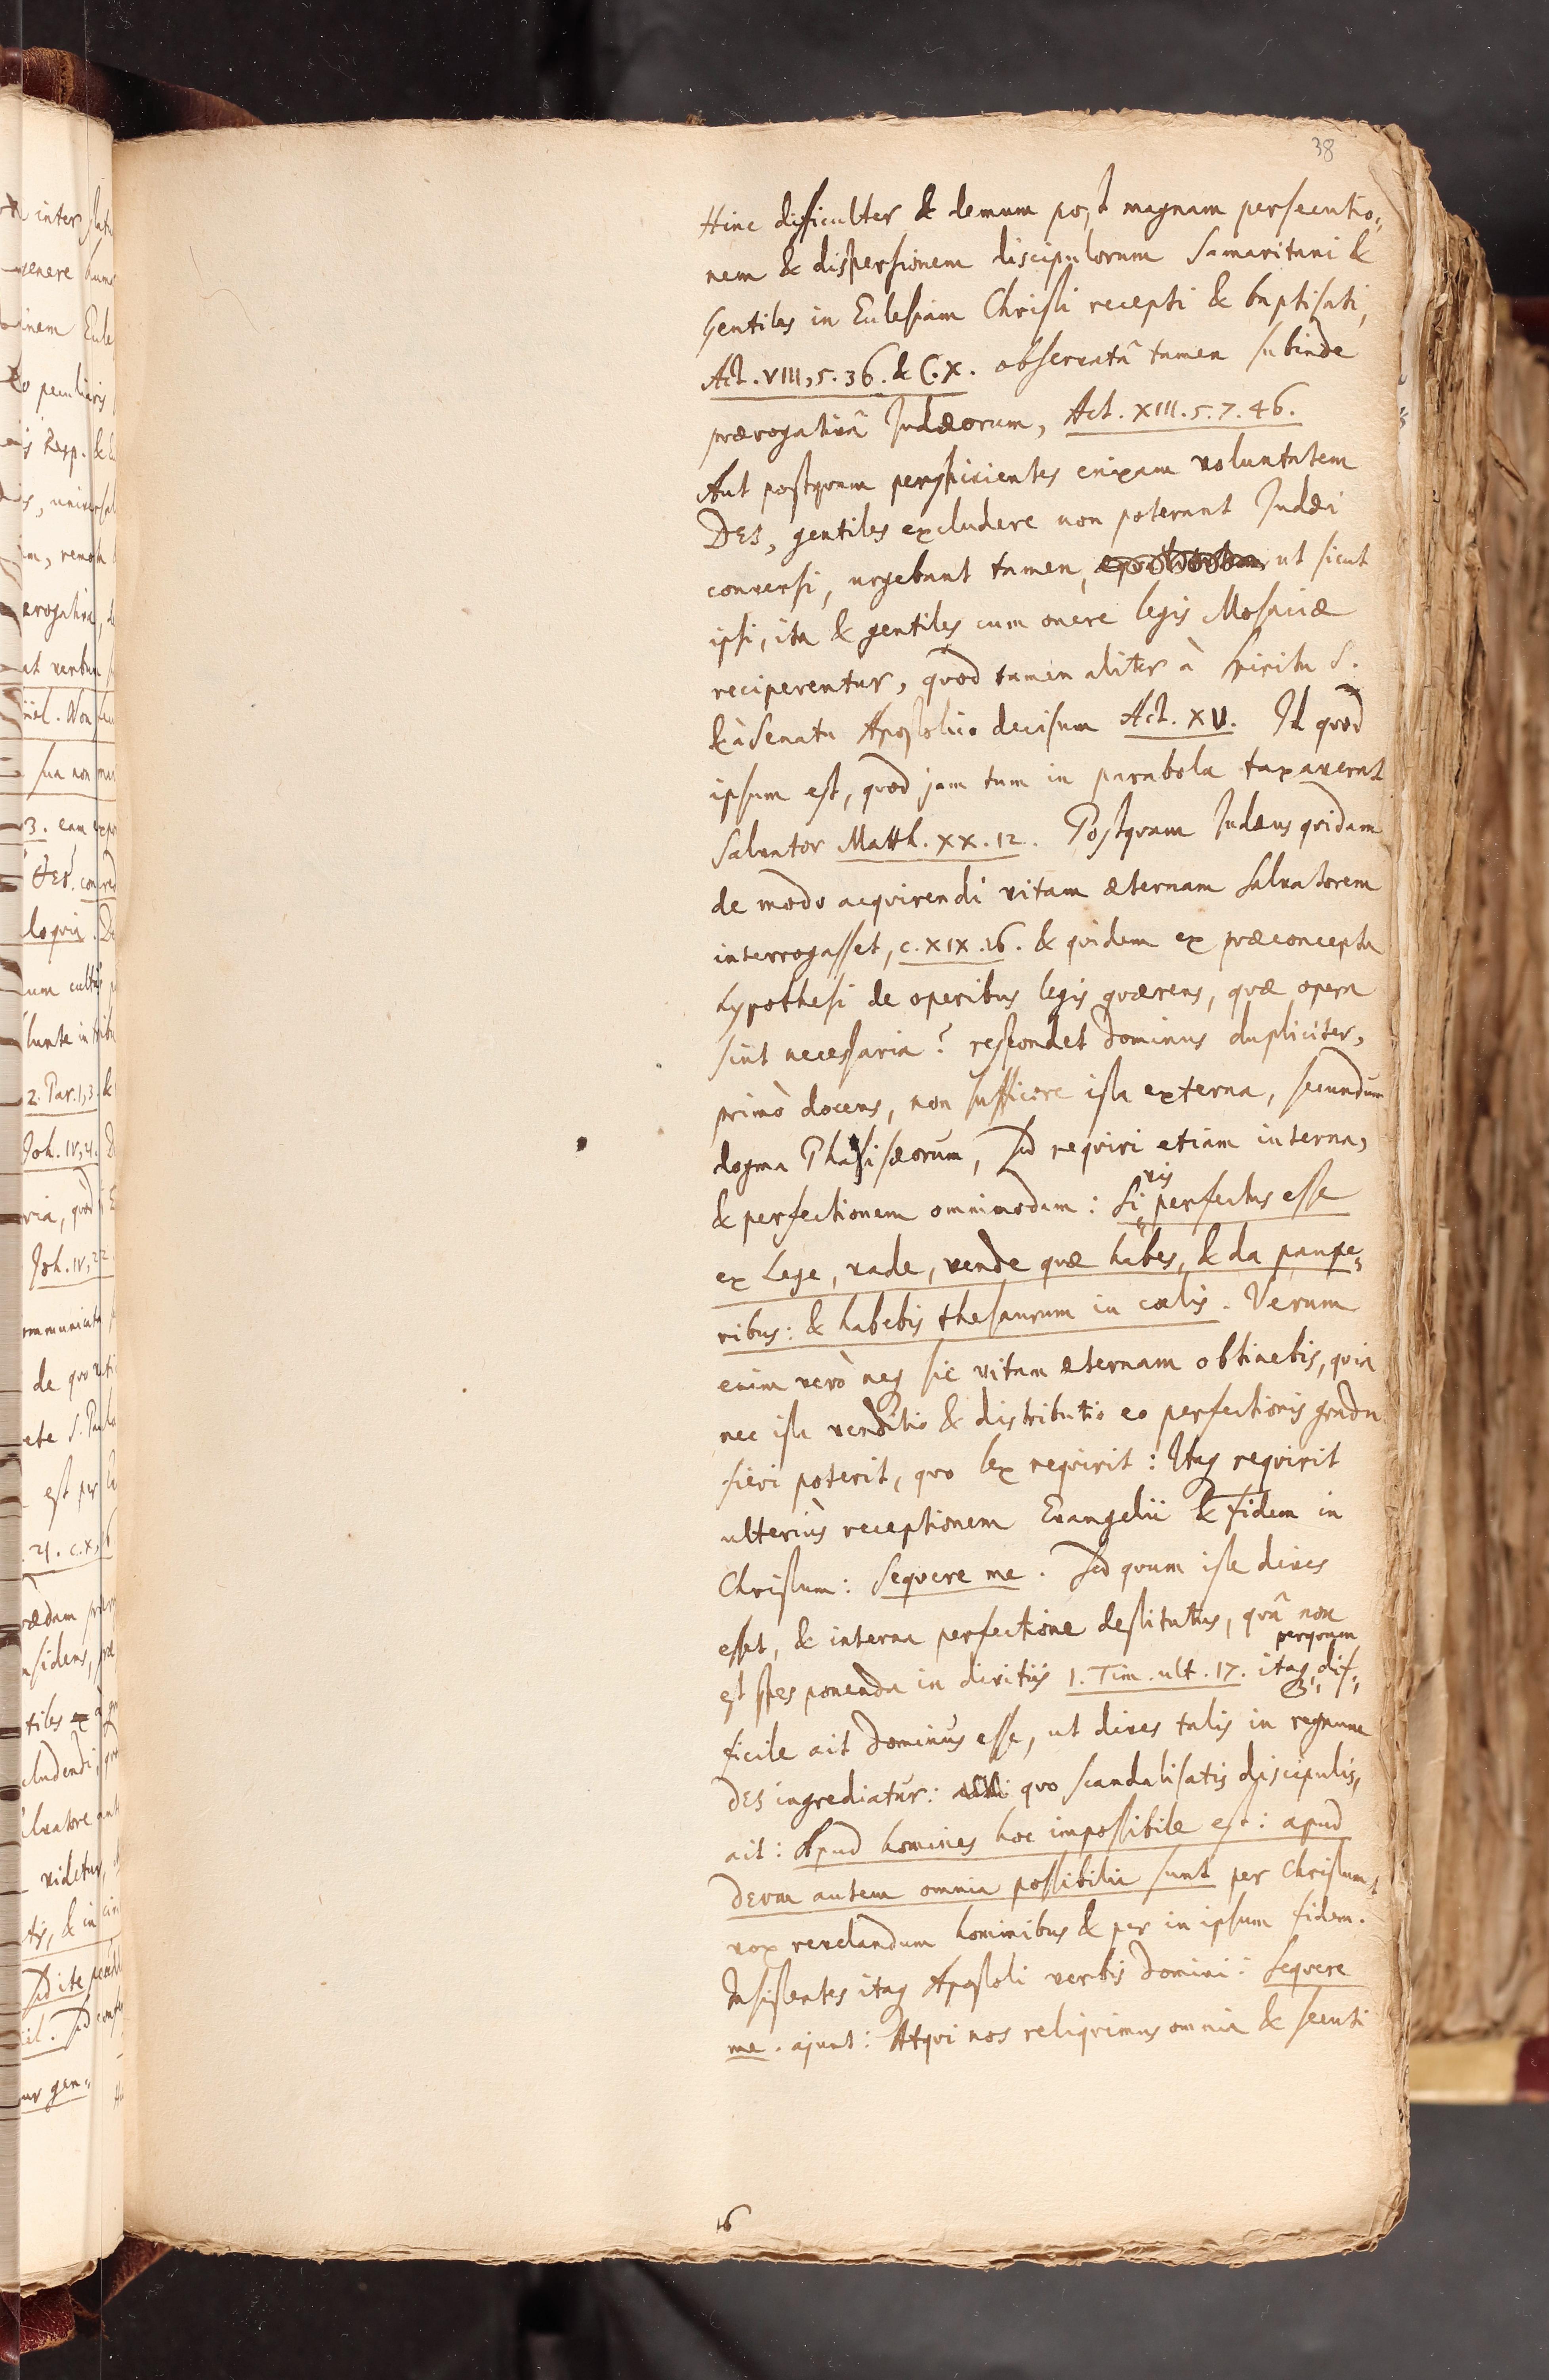 38
Hinc difficulter & demum post magnam persecutio„
nem & dispersionem discipulorum Samaritani &
Gentiles in Ecclesiam Christi recepti & baptisati,
Act. VIII, 5. 36. & C. X. observatâ tamen subinde
prærogativâ Judæorum, Act. XIII. 5. 7. 46.
Aut postqvam perspicientes enixam voluntatem
DEI, gentiles excludere non poterant Judæi
conversi, urgebant tamen, ut sicut
ipsi, ita & gentiles cum onere legis Mosaicæ
reciperentur, qvod tamen aliter à Spiritu S.
& à Senatu Apostolico decisum Act. XV. Id qvod
ipsum est, qvod jam tum in parabola taxaverat
Salvator Matth. XX. 12. Postqvam Judæus qvidam
de modo acqvirendi vitam æternam Salvatorem
interrogasset, c. XIX. 16. & qvidem ex præconcepta
hypothesi de operibus legis qværens, qvæ opera
sint necessaria? respondet Dominus dupliciter,
primò docens, non sufficere ista externa, secundum
dogma Pharisæorum, sed reqviri etiam interna,
& perfectionem omnimodam: Si vis perfectus esse
ex Lege, vade, vende qvæ habes, & da paupe„
ribus: & habebis thesaurum in cœlis. Verum
enim verò neq sic vitam æternam obtinebis, qvia
nec ista venditio & distributio eo perfectionis gradu
fieri poterit, qvo lex reqvirit: Itaq reqvirit
ulteriùs receptionem Evangelii & fidem in
Christum: Seqvere me. Sed qvum iste dives
esset, & interna perfectione destitutus, qvâ non
est spes ponenda in divitiis 1. Tim. ult. 17. itaq perqvam dif„
ficile ait Dominus esse, ut dives talis in regnum
DEI ingrediatur: qvo scandalisatis discipulis,
ait: Apud homines hoc impossibile est: apud
DEUM autem omnia possibilia sunt per Christum,
mox revelandum hominibus & per in ipsum fidem.
Insistentes itaq Apostoli verbis Domini: Seqvere
me. ajunt: Atqvi nos reliqvimus omnia & secuti
16